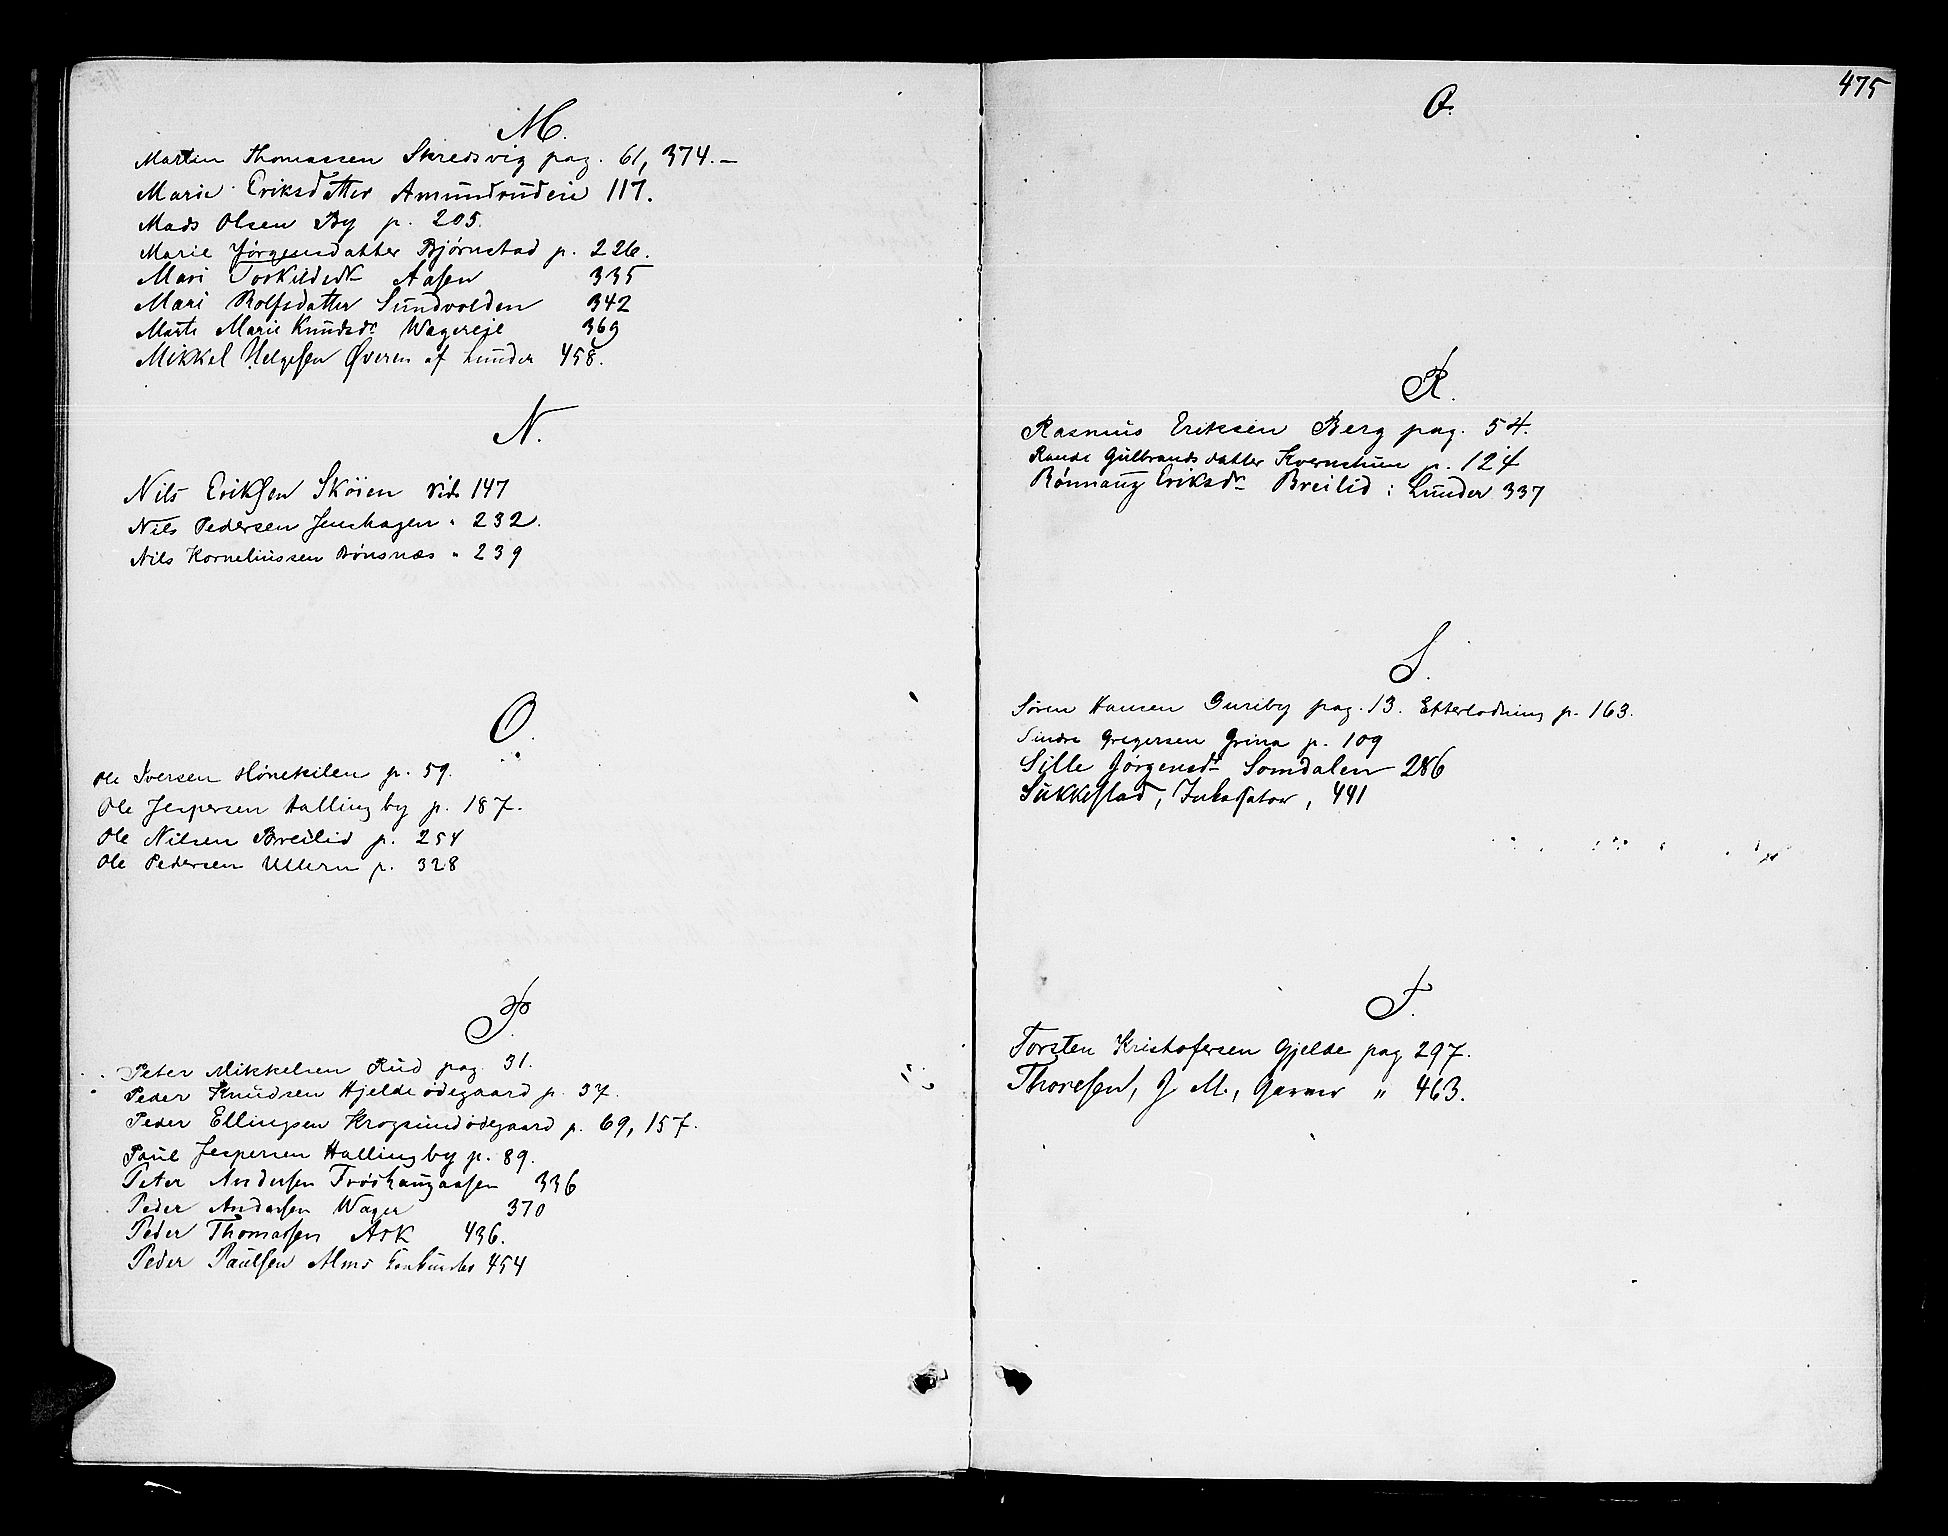 M.
Martin Thomassen Skredsvig pag. 61, 374.–
Marie Eriksdatter Amundrudeie 117.
Mads Olsen By p. 205.
Marie Jørgensdatter Bjørnstad p. 226.
Mari Torkildsdr Aasen 335
Mari Rolfsdatter Sundvolden 342
Marte Marie Knudsdr Wagereie 369
Mikkel Helgesen Øveren af Lunder 458.
N.
Nils Eriksen Sköien Side 147
Nils Pedersen Jenshagen " 232.
Nils Korneliussen Bönsnæs " 239
O.
Ole Iversen Hönekilen p. 59.
Ole Jespersen Hallingby p. 187.
Ole Nilsen Breilid p. 254
Ole Pedersen Ullern p. 328
P.
Peter Mikkelsen Rud pag. 31.
Peder Knudsen Hjelde ödegaard p. 37.
Peder Ellingsen Krogsundödegaard p. 69, 157.
Paul Jespersen Hallingby p. 89.
Peter Andersen Fröshaugaasen 336
Peder Andersen Wager 370
Peder Thomassen Ask 436.
Peder Paulsen Almo 454
475
Q.
R.
Rasmus Eriksen Berg pag. 54.
Rande Gulbrandsdatter Kvernstuen p. 124
Rönnaug Eriksdr Breilid i Lunder 337
S.
Søren Hansen Guriby pag. 13. Efterlodning p. 163.
Sindre Gregersen Grina p. 109
Sille Jörgensdr Somdalen 286
Sukkestad, Inkassator, 441
T.
Torsten Kristofersen Gjelde pag 297.
Thoresen, J M., Garver " 463.